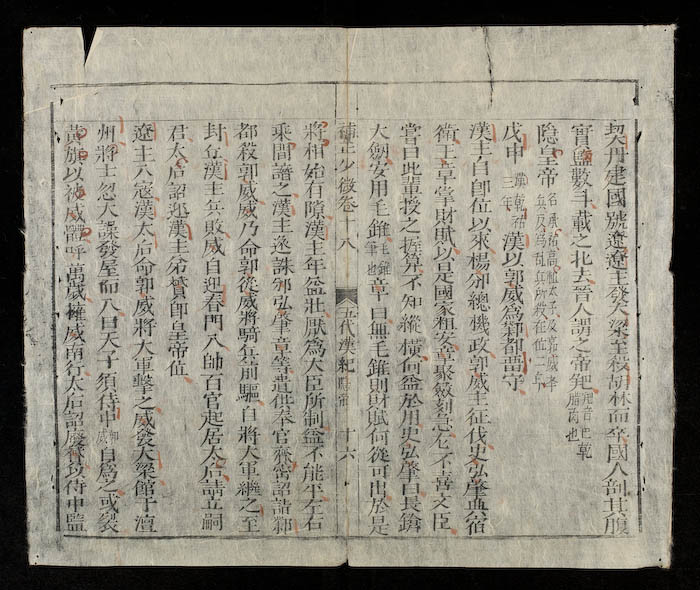 契丹建國號遼遼主發大梁至殺胡林而卒國人剖其腹
實鹽數斗載之北去晉人謂之帝羓羓音巴乾腊肉也
隐皇帝名承祐高祖太子及嘉威李兵反為亂兵所殺在位二年
戊申漢乾祐三年漢以郭威為鄴都畱守
漢主自卽位以來楊邠總機政郭威主征伐史弘肇典宿
衛王章掌財賦以是國家粗安章聚斂刻急尤不喜文臣
嘗曰此輩授之握算不知縱橫何益於用史弘肇曰長鎗
大劒安用毛錐毛錐筆也章曰無毛錐則財賦何從可出於是
補正少微卷十八 五代漢紀隐帝 十六
將相始有隙漢主年益壯厭為大臣所制益不能平左右
乘間譖之漢主遂誅邠弘肇章等遣供奉官齎密詔詣鄴
都殺郭威威乃命郭從威將騎兵前驅自將大軍繼之至
封丘漢主兵敗威自迎春門入帥百官起居太后請立嗣
君太后詔迎漢主弟贇卽皇帝位
遼主入寇漢太后命郭威將大軍擊之威發大梁館于澶
州將士忽大譟發屋而入曰天子須侍中郭威自為之或裂
黃旗以被威體呼萬威擁威南行太后詔廢贇以侍中監